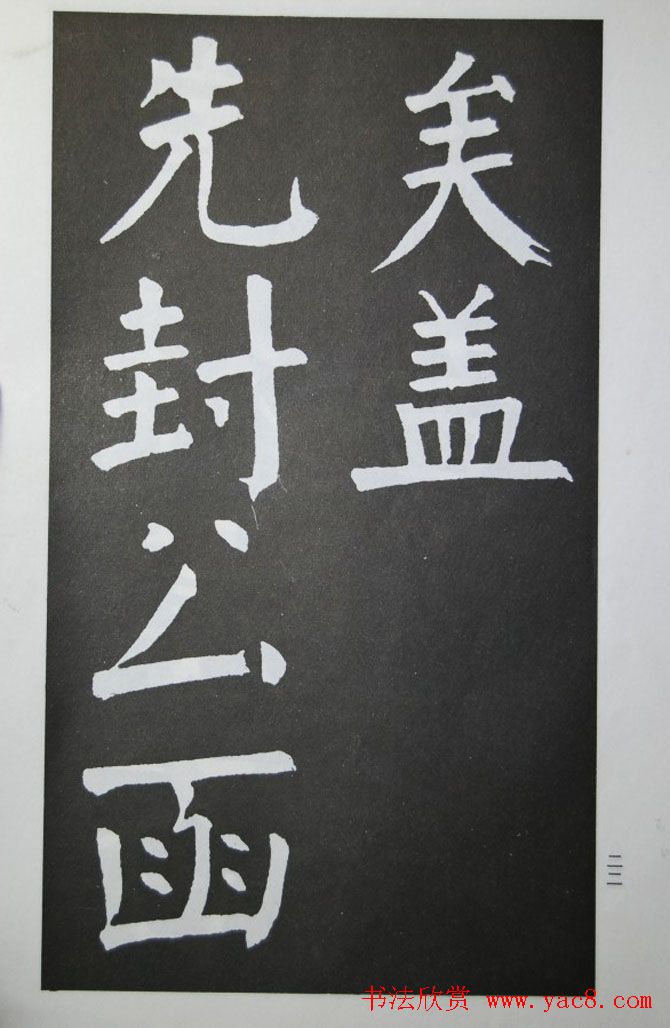 矣盖
先封公函
书法欣赏 www.yac8.com